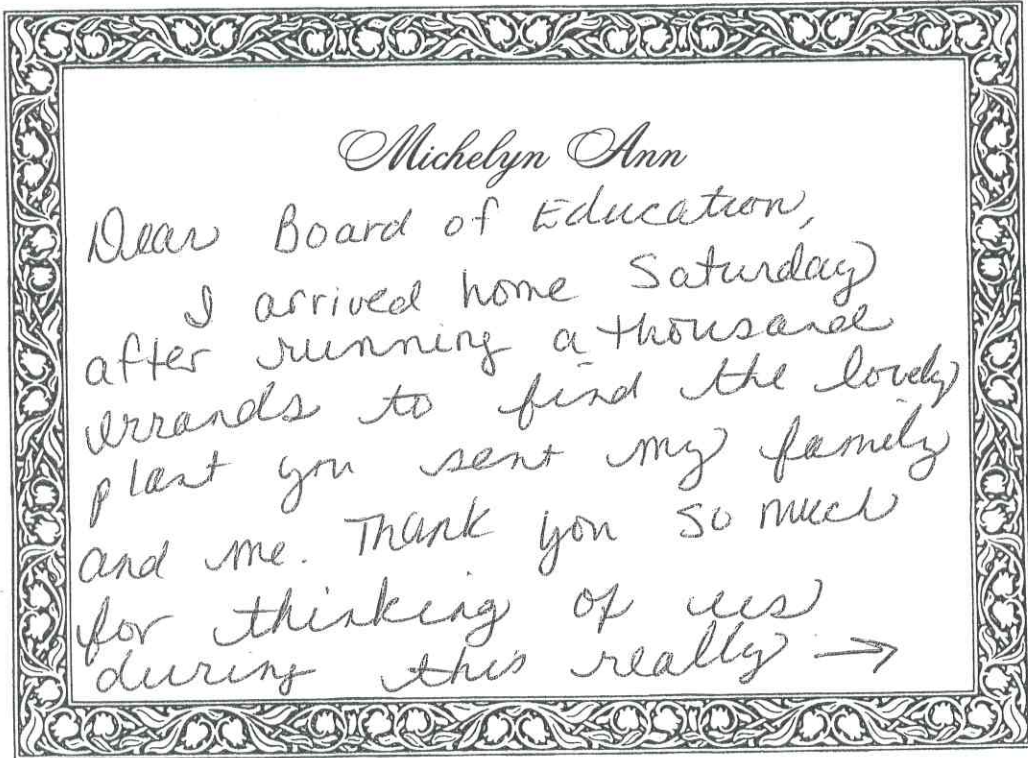 Michelyn Ann
Dear Board of Education,
I arrived home Saturday
after running a thousand
errands to find the lovely
plant you sent my family
and me. Thank you so much
for thinking of us
during this really →